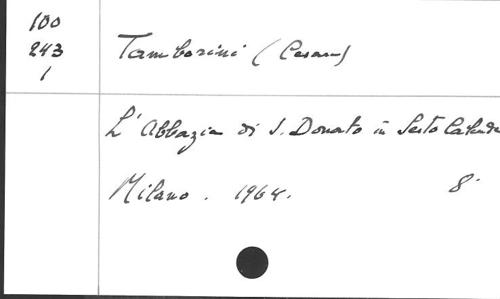 100
243
1
Tamborini (Cesare)
L'Abbazia di S. Donato in Sesto Calende
Milano. 1964. 8°